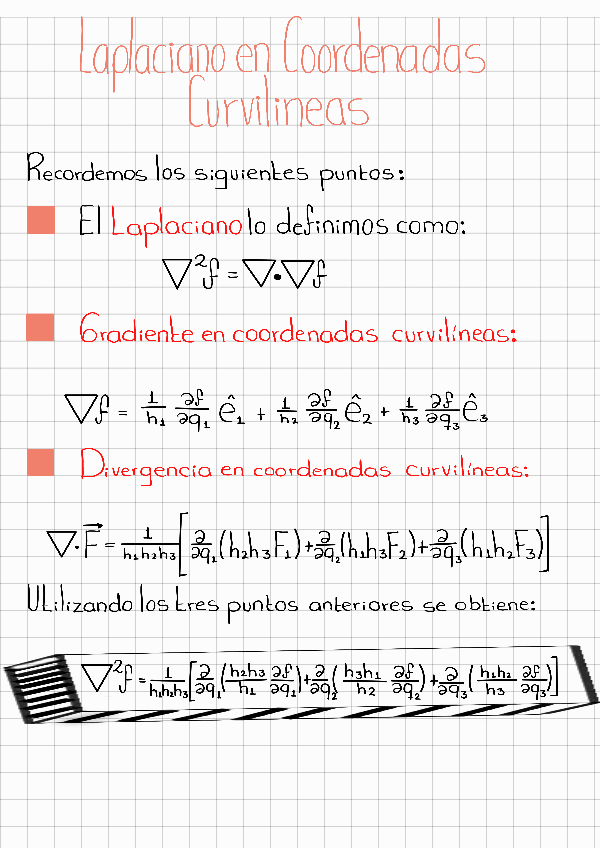 Laplaciano en Coordenadas
Curvilineas
Recordemos los siguientes puntos:
El Laplaciano lo definimos como:
∇²f = ∇•∇f
Gradiente en coordenadas curvilíneas:
∇f = 1/h₁ ∂f/∂q₁ ê₁ + 1/h₂ ∂f/∂q₂ ê₂ + 1/h₃ ∂f/∂q₃ ê₃
Divergencia en coordenadas curvilíneas:
∇·F⃗ = 1/(h₁h₂h₃) [∂/∂q₁(h₂h₃F₁)+∂/∂q₂(h₁h₃F₂)+∂/∂q₃(h₁h₂F₃)]
Utilizando los tres puntos anteriores se obtiene:
∇²f = 1/(h₁h₂h₃) [∂/∂q₁(h₂h₃/h₁ ∂f/∂q₁)+∂/∂q₂(h₃h₁/h₂ ∂f/∂q₂)+∂/∂q₃(h₁h₂/h₃ ∂f/∂q₃)]